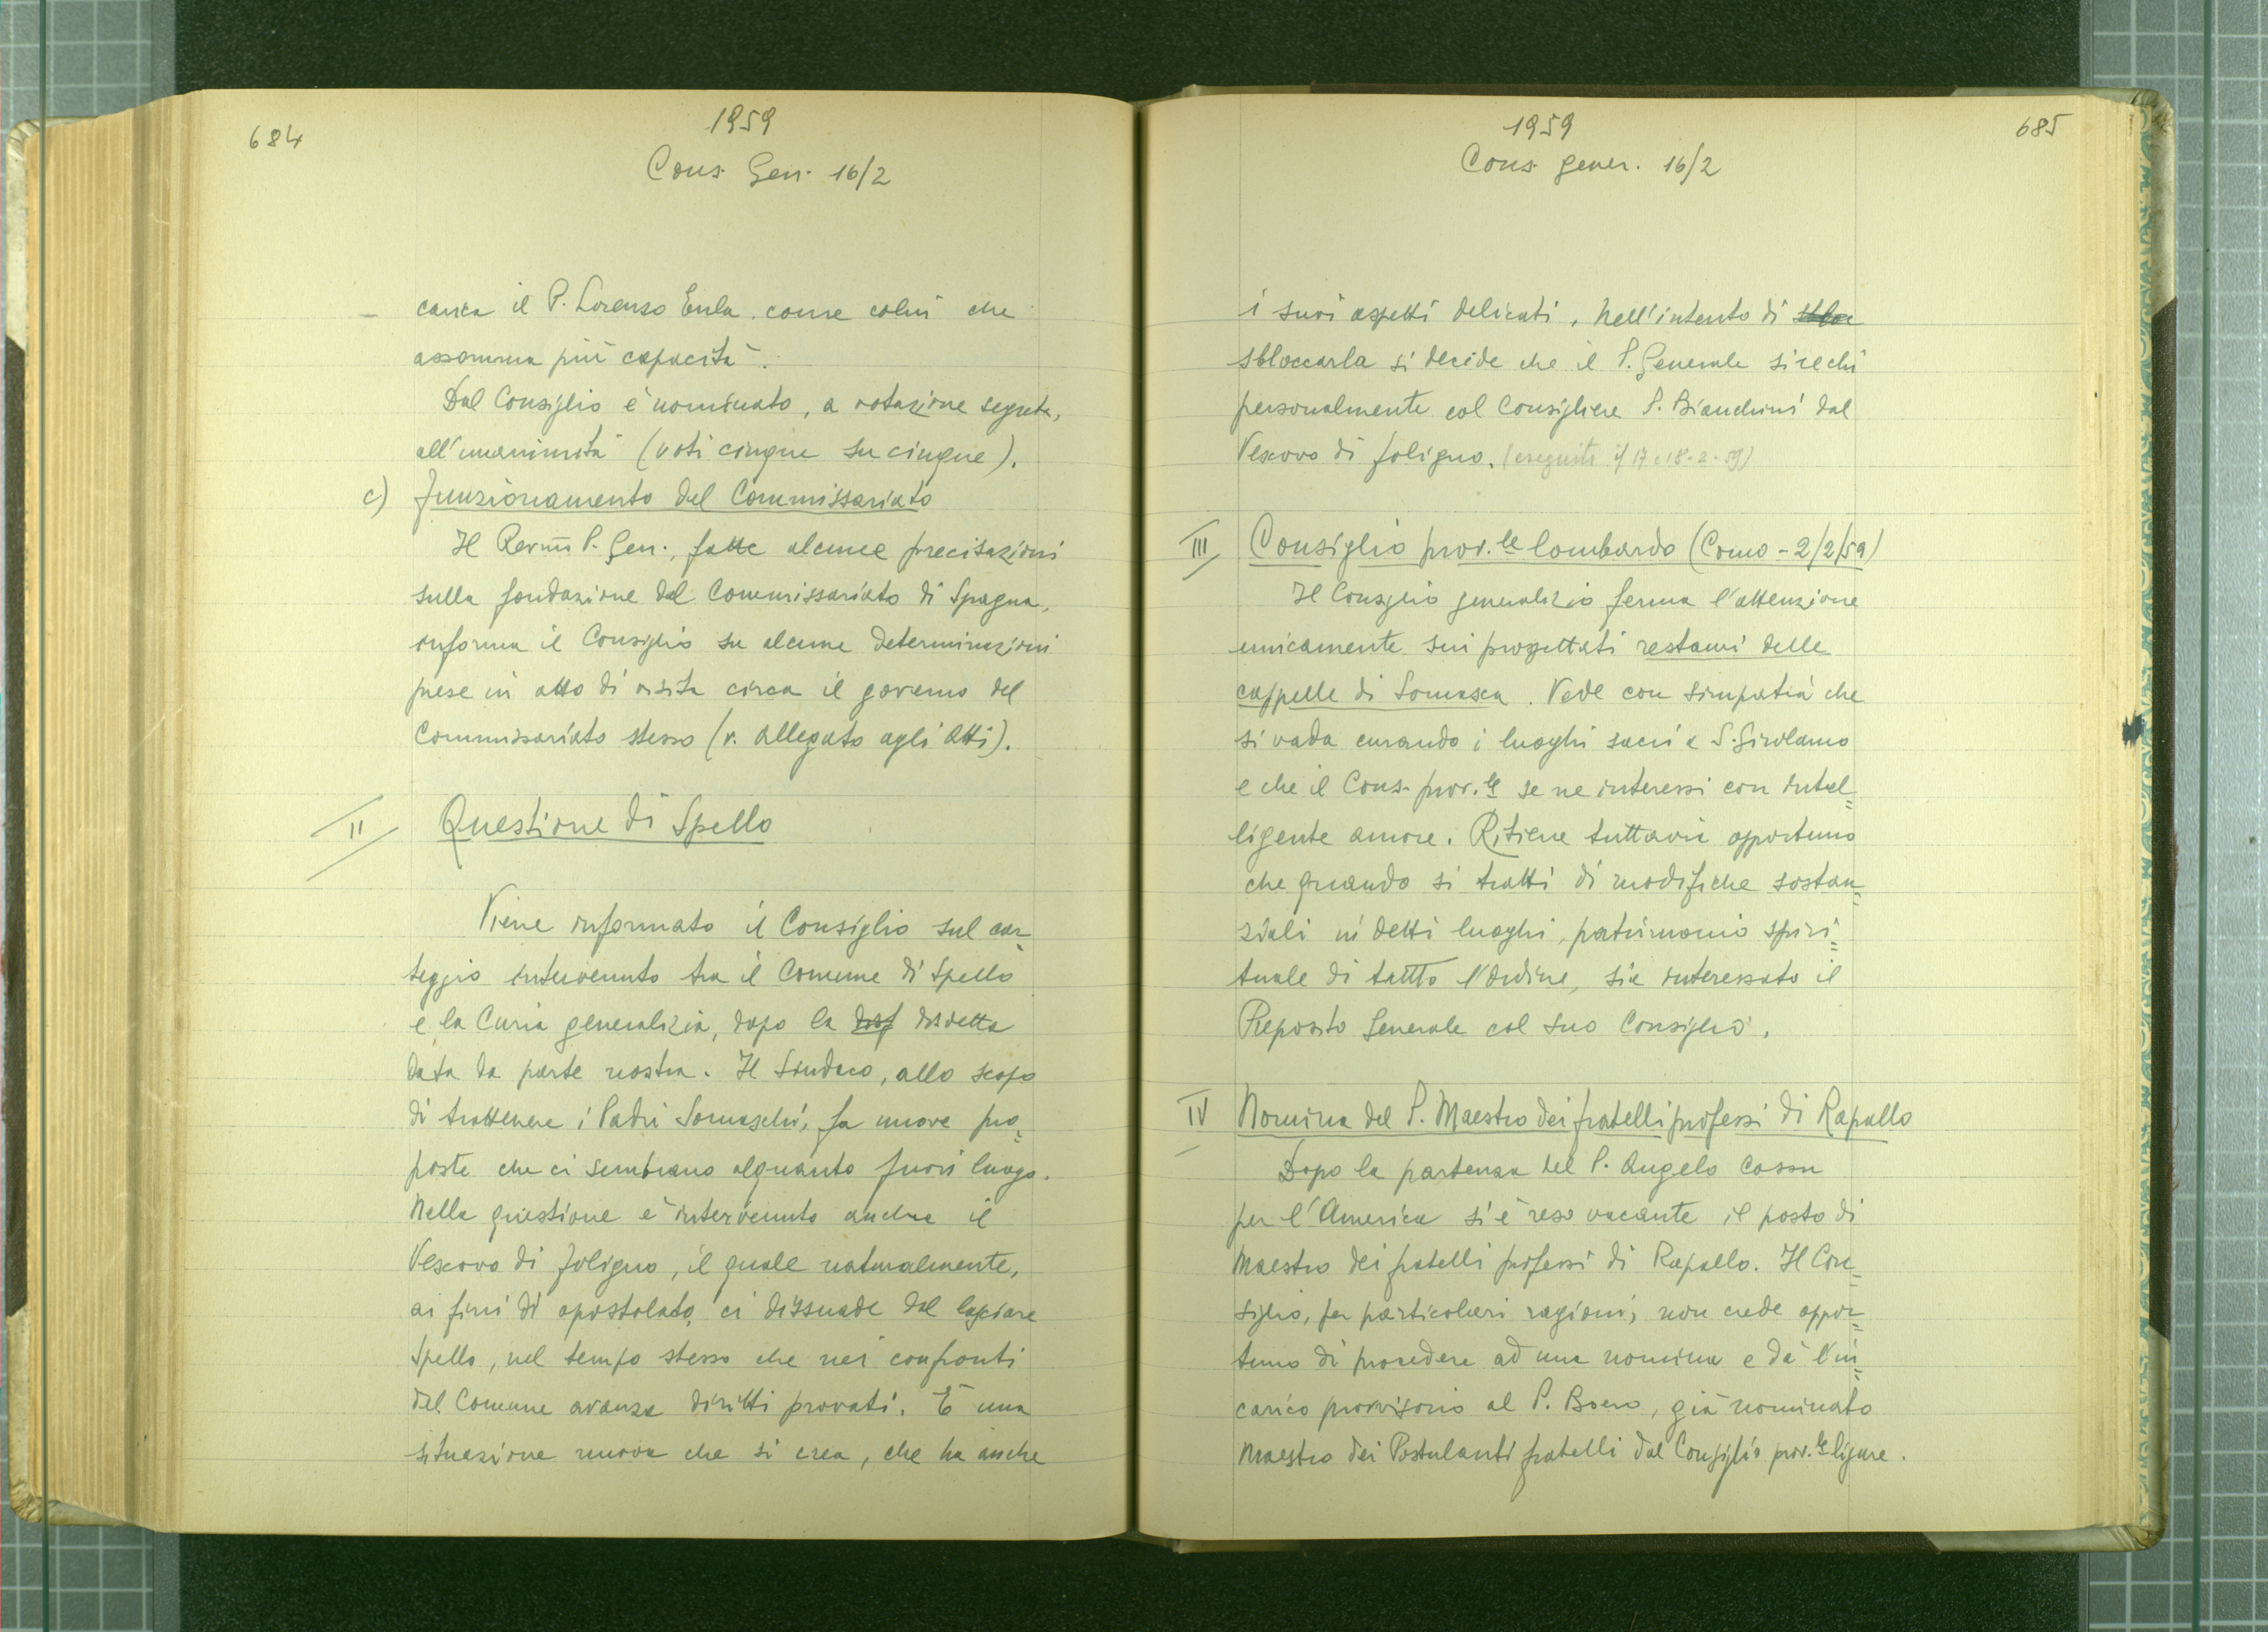 684
1959
Cons. Gen. 16/2
carica il P. Lorenzo Eula, come colui che
assomma più capacità.
Dal Consiglio è nominato, a votazione segreta,
all'unanimità (voti cinque su cinque).
c) Funzionamento del Commissariato
Il Rev.m̄ P. Gen., fatte alcune precisazioni
sulla fondazione del Commissariato di Spagna,
informa il Consiglio su alcune determinazioni
prese in atto di visita circa il governo del
Commissariato stesso (v. allegato agli atti).
II Questione di Spello
Viene informato il Consiglio sul car=
teggio intervenuto tra il Comune di Spello
e la Curia generalizia, dopo la disf disdetta
data da parte nostra. Il Sindaco, allo scopo
di trattenere i Padri Somaschi, fa nuove pro=
poste che ci sembrano alquanto fuori luogo.
Nella questione è intervenuto anche il
Vescovo di Foligno, il quale naturalmente,
ai fini di apostolato, ci dissuade dal lasciare
Spello, nel tempo stesso che nei confronti
del Comune avanza diritti provati. È una
situazione nuova che si crea, che ha anche
1959
Cons. gener. 16/2
685
i suoi aspetti delicati. Nell'intento di sbloc
sbloccarla si decide che il P. Generale si rechi
personalmente col Consigliere P. Bianchini dal
Vescovo di Foligno. (eseguito il 17 e 18-2-59)
III Consiglio prov.le lombardo (Como - 2/2/59)
Il Consiglio generalizio ferma l'attenzione
unicamente sui progettati restauri delle
cappelle di Somasca. Vede con simpatia che
si vada curando i luoghi sacri a S. Girolamo
e che il Cons. prov.le se ne interessi con intel=
ligente amore. Ritiene tuttavia opportuno
che quando si tratti di modifiche sostan=
ziali in detti luoghi, patrimonio spiri=
tuale di tutto l'Ordine, sia interessato il
Preposito Generale col suo Consiglio.
IV Nomina del P. Maestro dei fratelli professi di Rapallo
Dopo la partenza del P. Angelo Cossu
per l'America si è reso vacante il posto di
Maestro dei fratelli professi di Rapallo. Il Con=
siglio, per particolari ragioni, non crede oppor=
tuno di procedere ad una nomina e dà l'in=
carico provvisorio al P. Boero, già nominato
Maestro dei Postulanti fratelli dal Consiglio prov.le ligure.